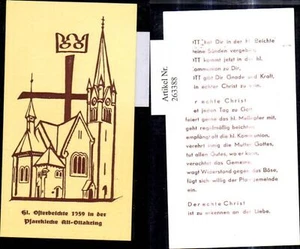 Hl. Osterbeichte 1959 in der
Pfarrkirche Alt-Ottakring
Artikel Nr.
263388
OTT hat Dir in der hl. Beichte
eine Sünden vergeben,
OTT kommt jetzt in der hl.
ommunion zu Dir,
OTT gibt Dir Gnade und Kraft,
in echter Christ zu
r echte Christ
et jeden Tag zu Gott
feiert gerne das hl. Meßopfer mit,
geht regelmäßig beichten,
empfängt oft die hl. Kommunion,
verehrt innig die Mutter Gottes,
tut allen Gutes, wo er kann,
verachtet das Gemeine,
wagt Widerstand gegen das Böse,
fügt sich willig der Pfarrgemeinde
ein.
Der echte Christ
ist zu erkennen an der Liebe.